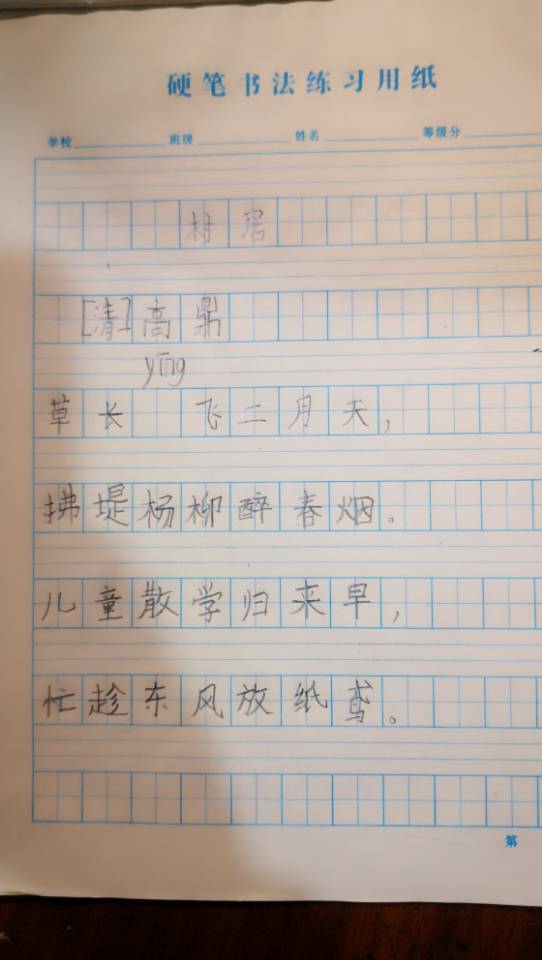 硬笔书法练习用纸
学校 班级 姓名 等级分
村居
[清]高鼎
yīng
草长 飞二月天,
拂堤杨柳醉春烟。
儿童散学归来早,
忙趁东风放纸鸢。
第